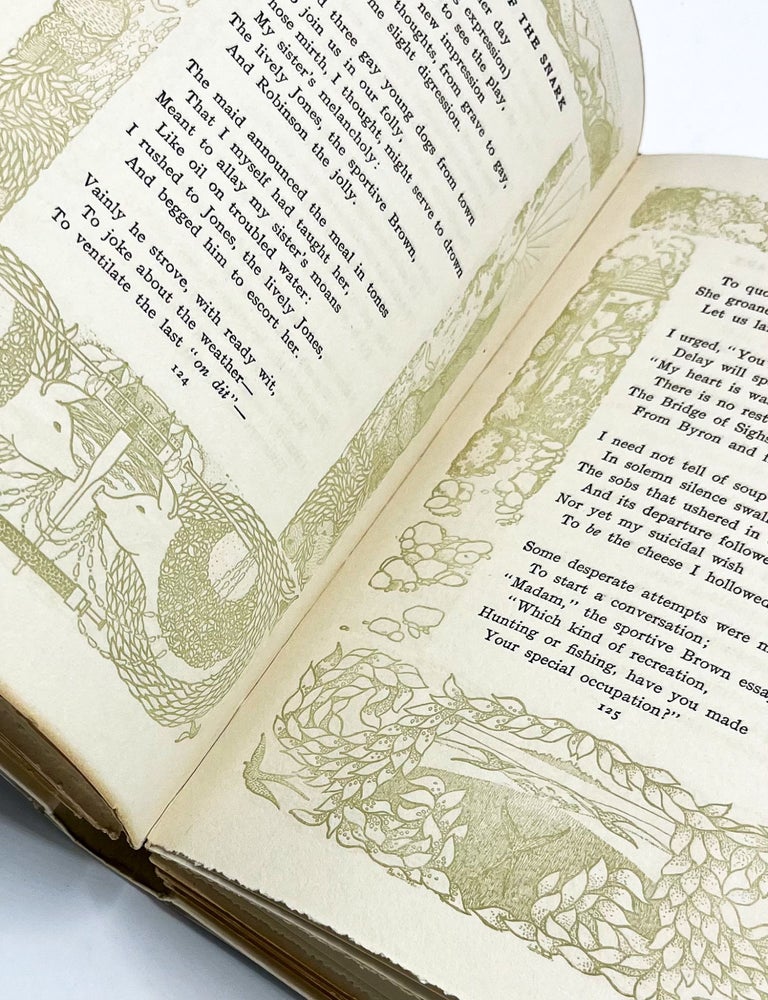 OF THE SNARK
day
expression)
to see the play,
new impression
thoughts, from grave to gay,
me slight digression.
three gay young dogs from town
To join us in our folly,
hose mirth, I thought, might serve to drown
My sister's melancholy:
The lively Jones, the sportive Brown,
And Robinson the jolly.
The maid announced the meal in tones
That I myself had taught her,
Meant to allay my sister's moans
Like oil on troubled water:
I rushed to Jones, the lively Jones,
And begged him to escort her.
Vainly he strove, with ready wit,
To joke about the weather—
To ventilate the last "on dit"—
124
To quo
She groane
Let us la
I urged, "You
Delay will sp
"My heart is was
There is no rest
The Bridge of Sighs
From Byron and f
I need not tell of soup
In solemn silence swall
The sobs that ushered in
And its departure followe
Nor yet my suicidal wish
To be the cheese I hollowed
Some desperate attempts were m
To start a conversation;
"Madam," the sportive Brown essa
"Which kind of recreation,
Hunting or fishing, have you made
Your special occupation?"
125